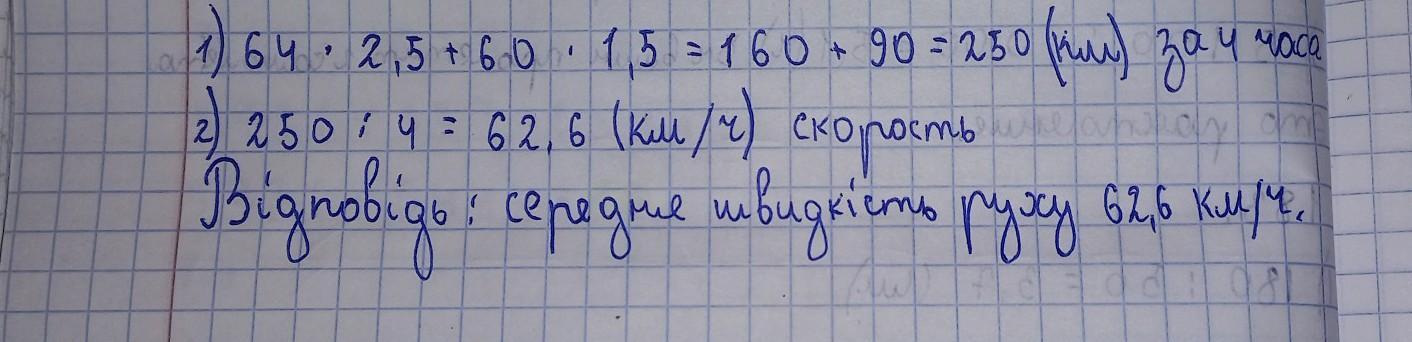 1) 64 · 2,5 + 60 · 1,5 = 160 + 90 = 250 (км) за 4 часа
2) 250 : 4 = 62,6 (км/ч) скорость
Відповідь : середне швидкість руху 62,6 км/ч.
180 : 50 = 3.7 (км)